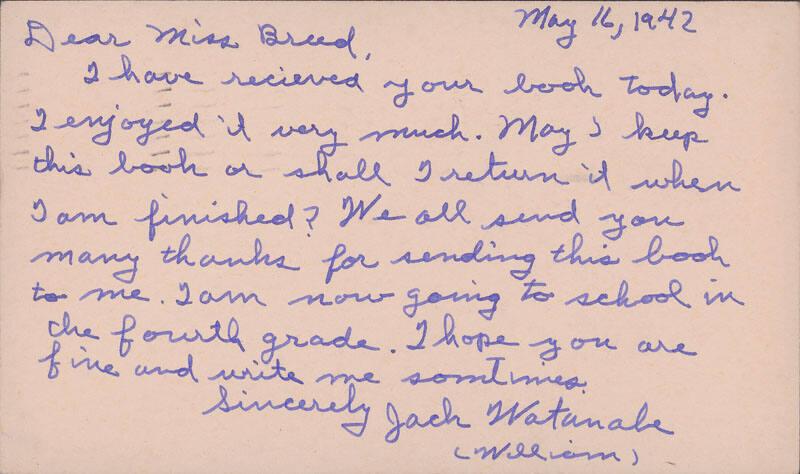 May 16, 1942
Dear Miss Breed,
I have recieved your book today.
I enjoyed it very much. May I keep
this book or shall I return it when
I am finished? We all send you
many thanks for sending this book
to me. I am now going to school in
the fourth grade. I hope you are
fine and write me somtimes.
Sincerely Jack Watanabe
(William)